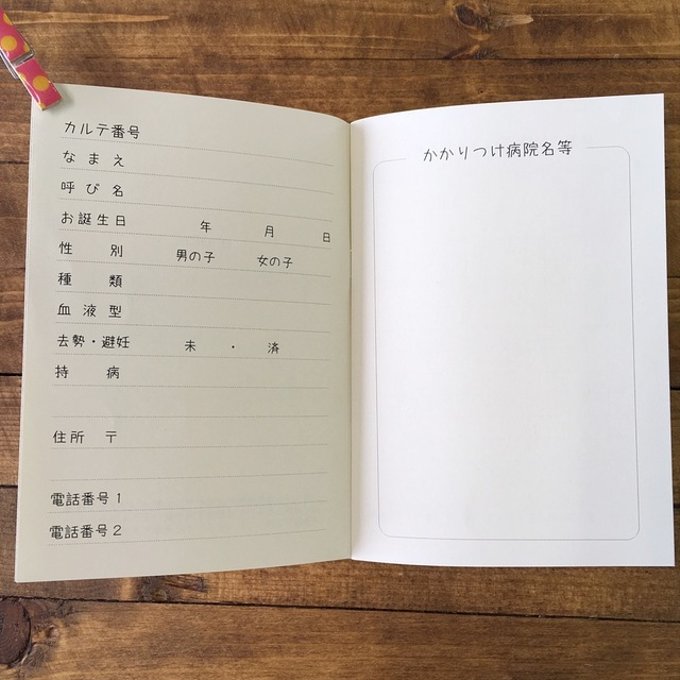 カルテ番号
なまえ
呼び名
お誕生日 年 月 日
性 別 男の子 女の子
種 類
血液型
去勢・避妊 未 ・ 済
持 病
住所 〒
電話番号1
電話番号2
かかりつけ病院名等